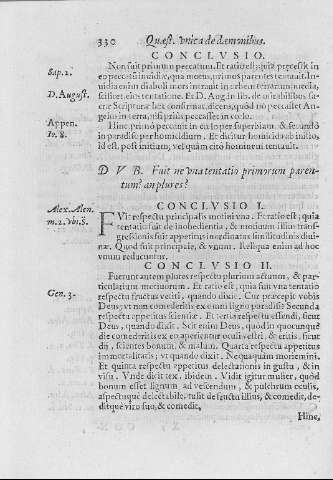 330 Quæst. vnica de dæmonibus.
CONCLVSIO.
Non fuit primum peccatum. Et ratio est; quia præcessit in
eo peccatũ inuidiæ, qua motus, primos parentes tentauit. In-
Sap. 2.
uidia enim diaboli mors intrauit in orbem terrarum: media,
D. August.
scilicet, eius tentatione. Et D. Aug. in lib. de mirabilibus sa-
cræ Scripturæ hoc confirmat, dicens, quòd nõ peccasset An-
gelus in terra, nisi priùs peccasset in cœlo.
Appen.
Hinc primò peccauit in cœlo per superbiam: & secundò
Io. 8.
in paradiso per homicidium. Et dicitur homicida ab initio,
id est, post initium, vel quàm citò hominem tentauit.
D V B. Fuit ne vna tentatio primorum paren-
tum? an plures?
CONCLVSIO I.
Alex. Alen.
FVit respectu principalis motiui vna. Et ratio est; quia
m. 2. vbi. S.
tentatio fuit de inobedientia, & motiuum illius trans-
gressionis fuit appetitus inordinatus similitudinis diui-
næ. Quod fuit principale, & vnum. Reliqua enim ad hoc
vnum reducuntur.
CONCLVSIO II.
Fuerunt autem plures respectu plurium actuum, & par-
ticularium motiuorum. Et ratio est, quia fuit vna tentatio
Gen. 3.
respectu fructus vetiti, quando dixit: Cur præcepit vobis
Deus, vt non comederetis ex omni ligno paradisi? Secunda
respectu appetitus scientiæ. Et tertia respectu essendi, sicut
Deus, quando dixit: Scit enim Deus, quòd in quocunquè
die comederitis ex eo aperientur oculi vestri, & eritis, sicut
dij, scientes bonum, & malum. Quarta respectu appetitus
immortalitatis; vt quando dixit: Nequaquàm moriemini.
Et quinta respectu appetitus delectationis in gustu, & in
visu. Vnde dicit tex. ibidem: Vidit igitur mulier, quòd
bonum esset lignum ad vescendum, & pulchrum oculis,
aspectuque delectabile, tulit de fructu illius, & comedit, de-
ditquè viro suo, & comedit,
Hinc,